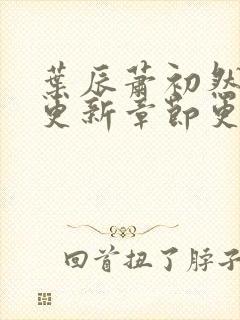 葉辰蕭初然
更新章節更
回首扭了脖子